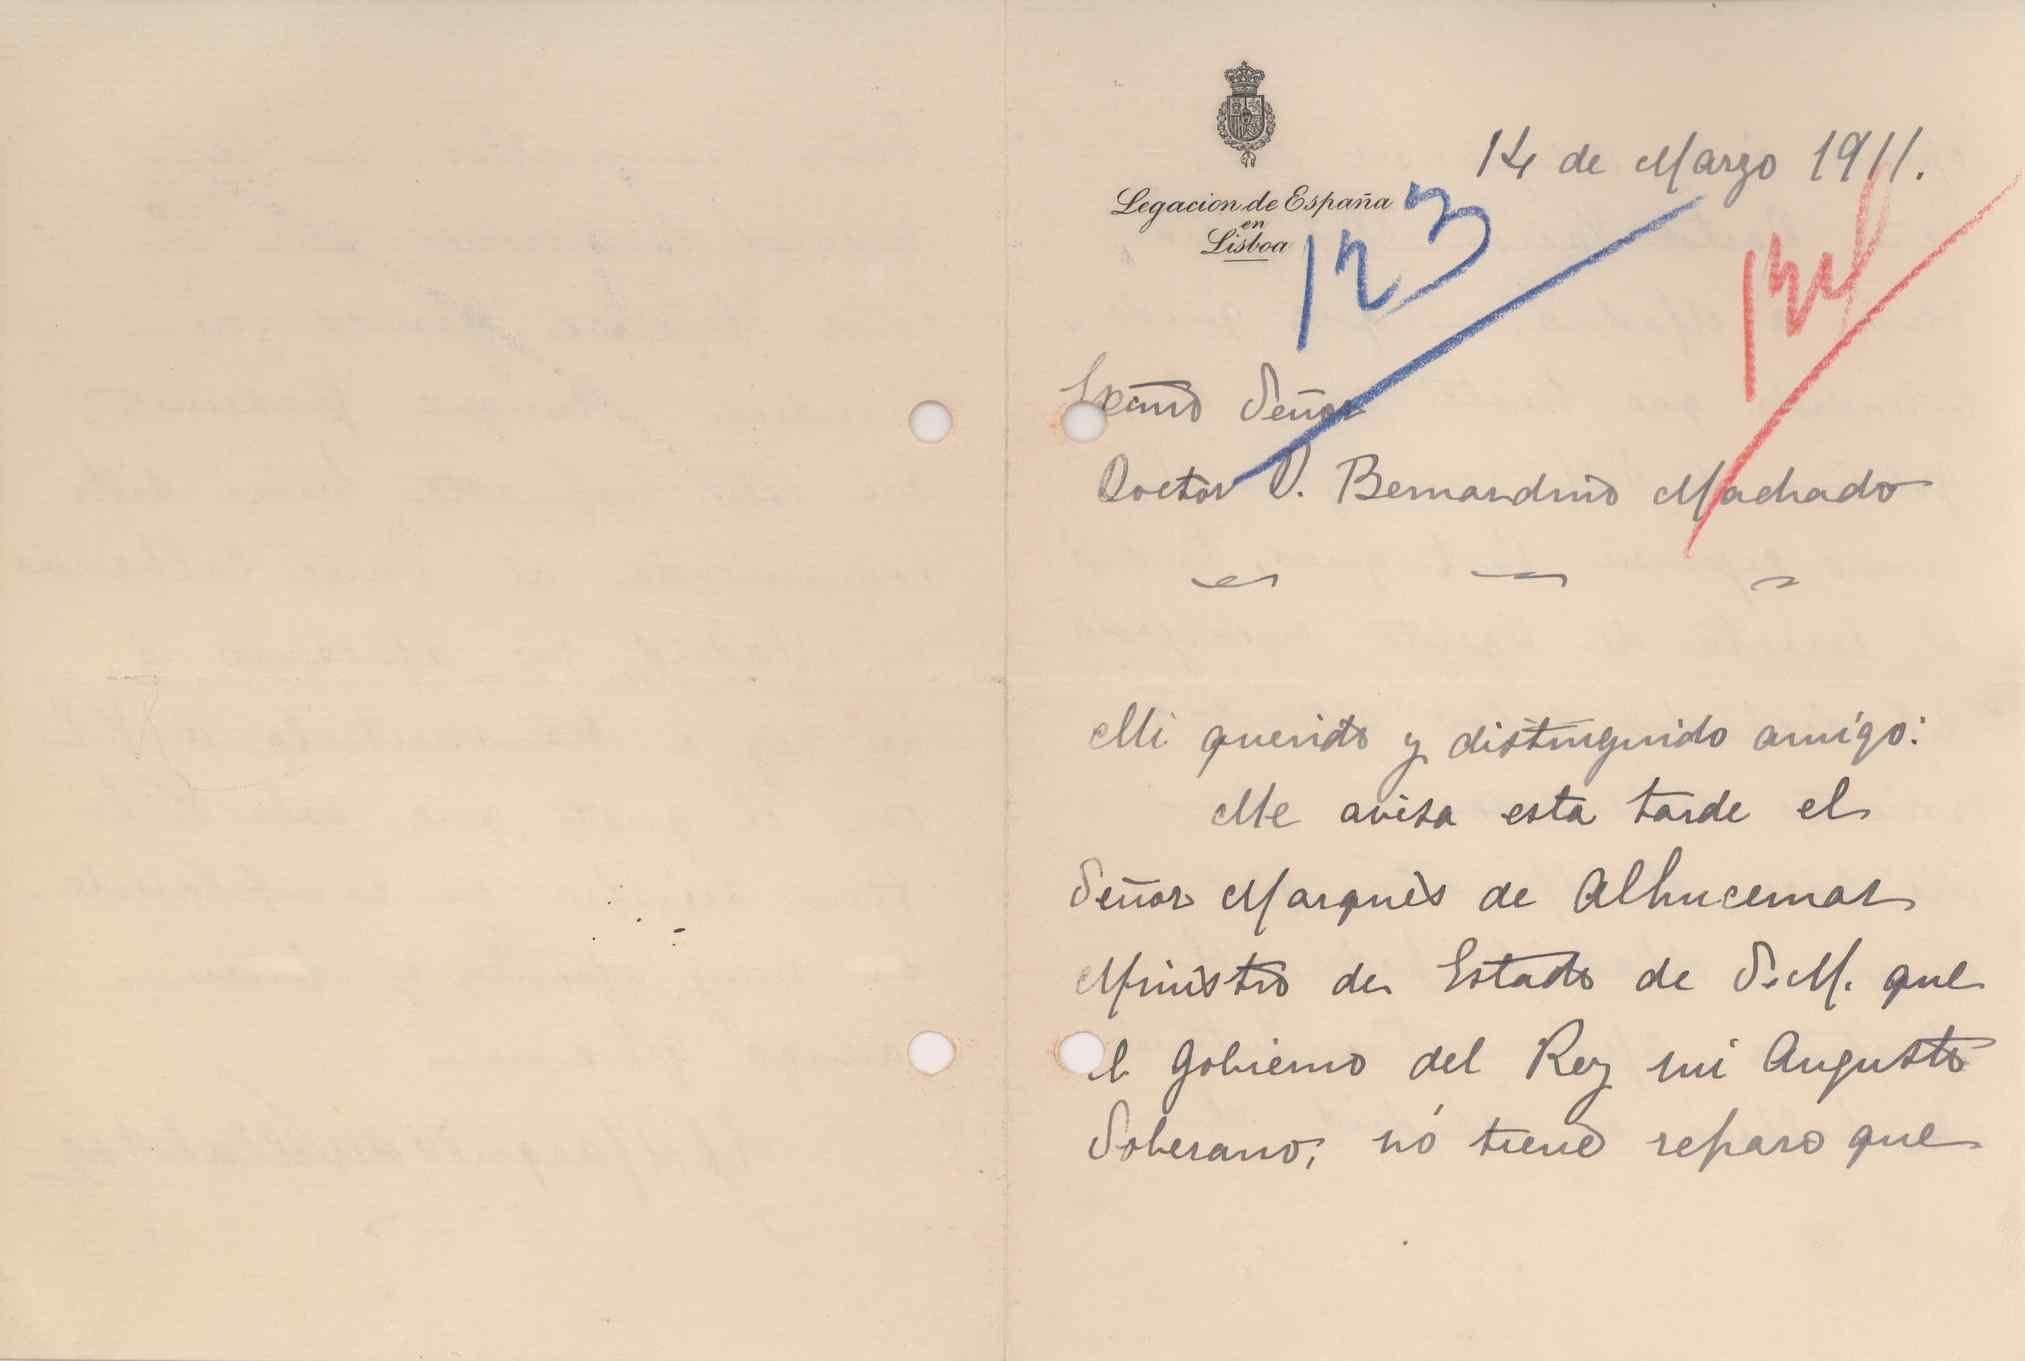 14 de Marzo 1911.
Legacion de España
en
Lisboa
123
124
Excmo Señor
Doctor D. Bernardino Machado
Mi querido y distinguido amigo:
Me avisa esta tarde el
Señor Marqués de Alhucemas
Ministro de Estado de S.M. que
el Gobierno del Rey mi Augusto
Soberano, nó tiene reparo que